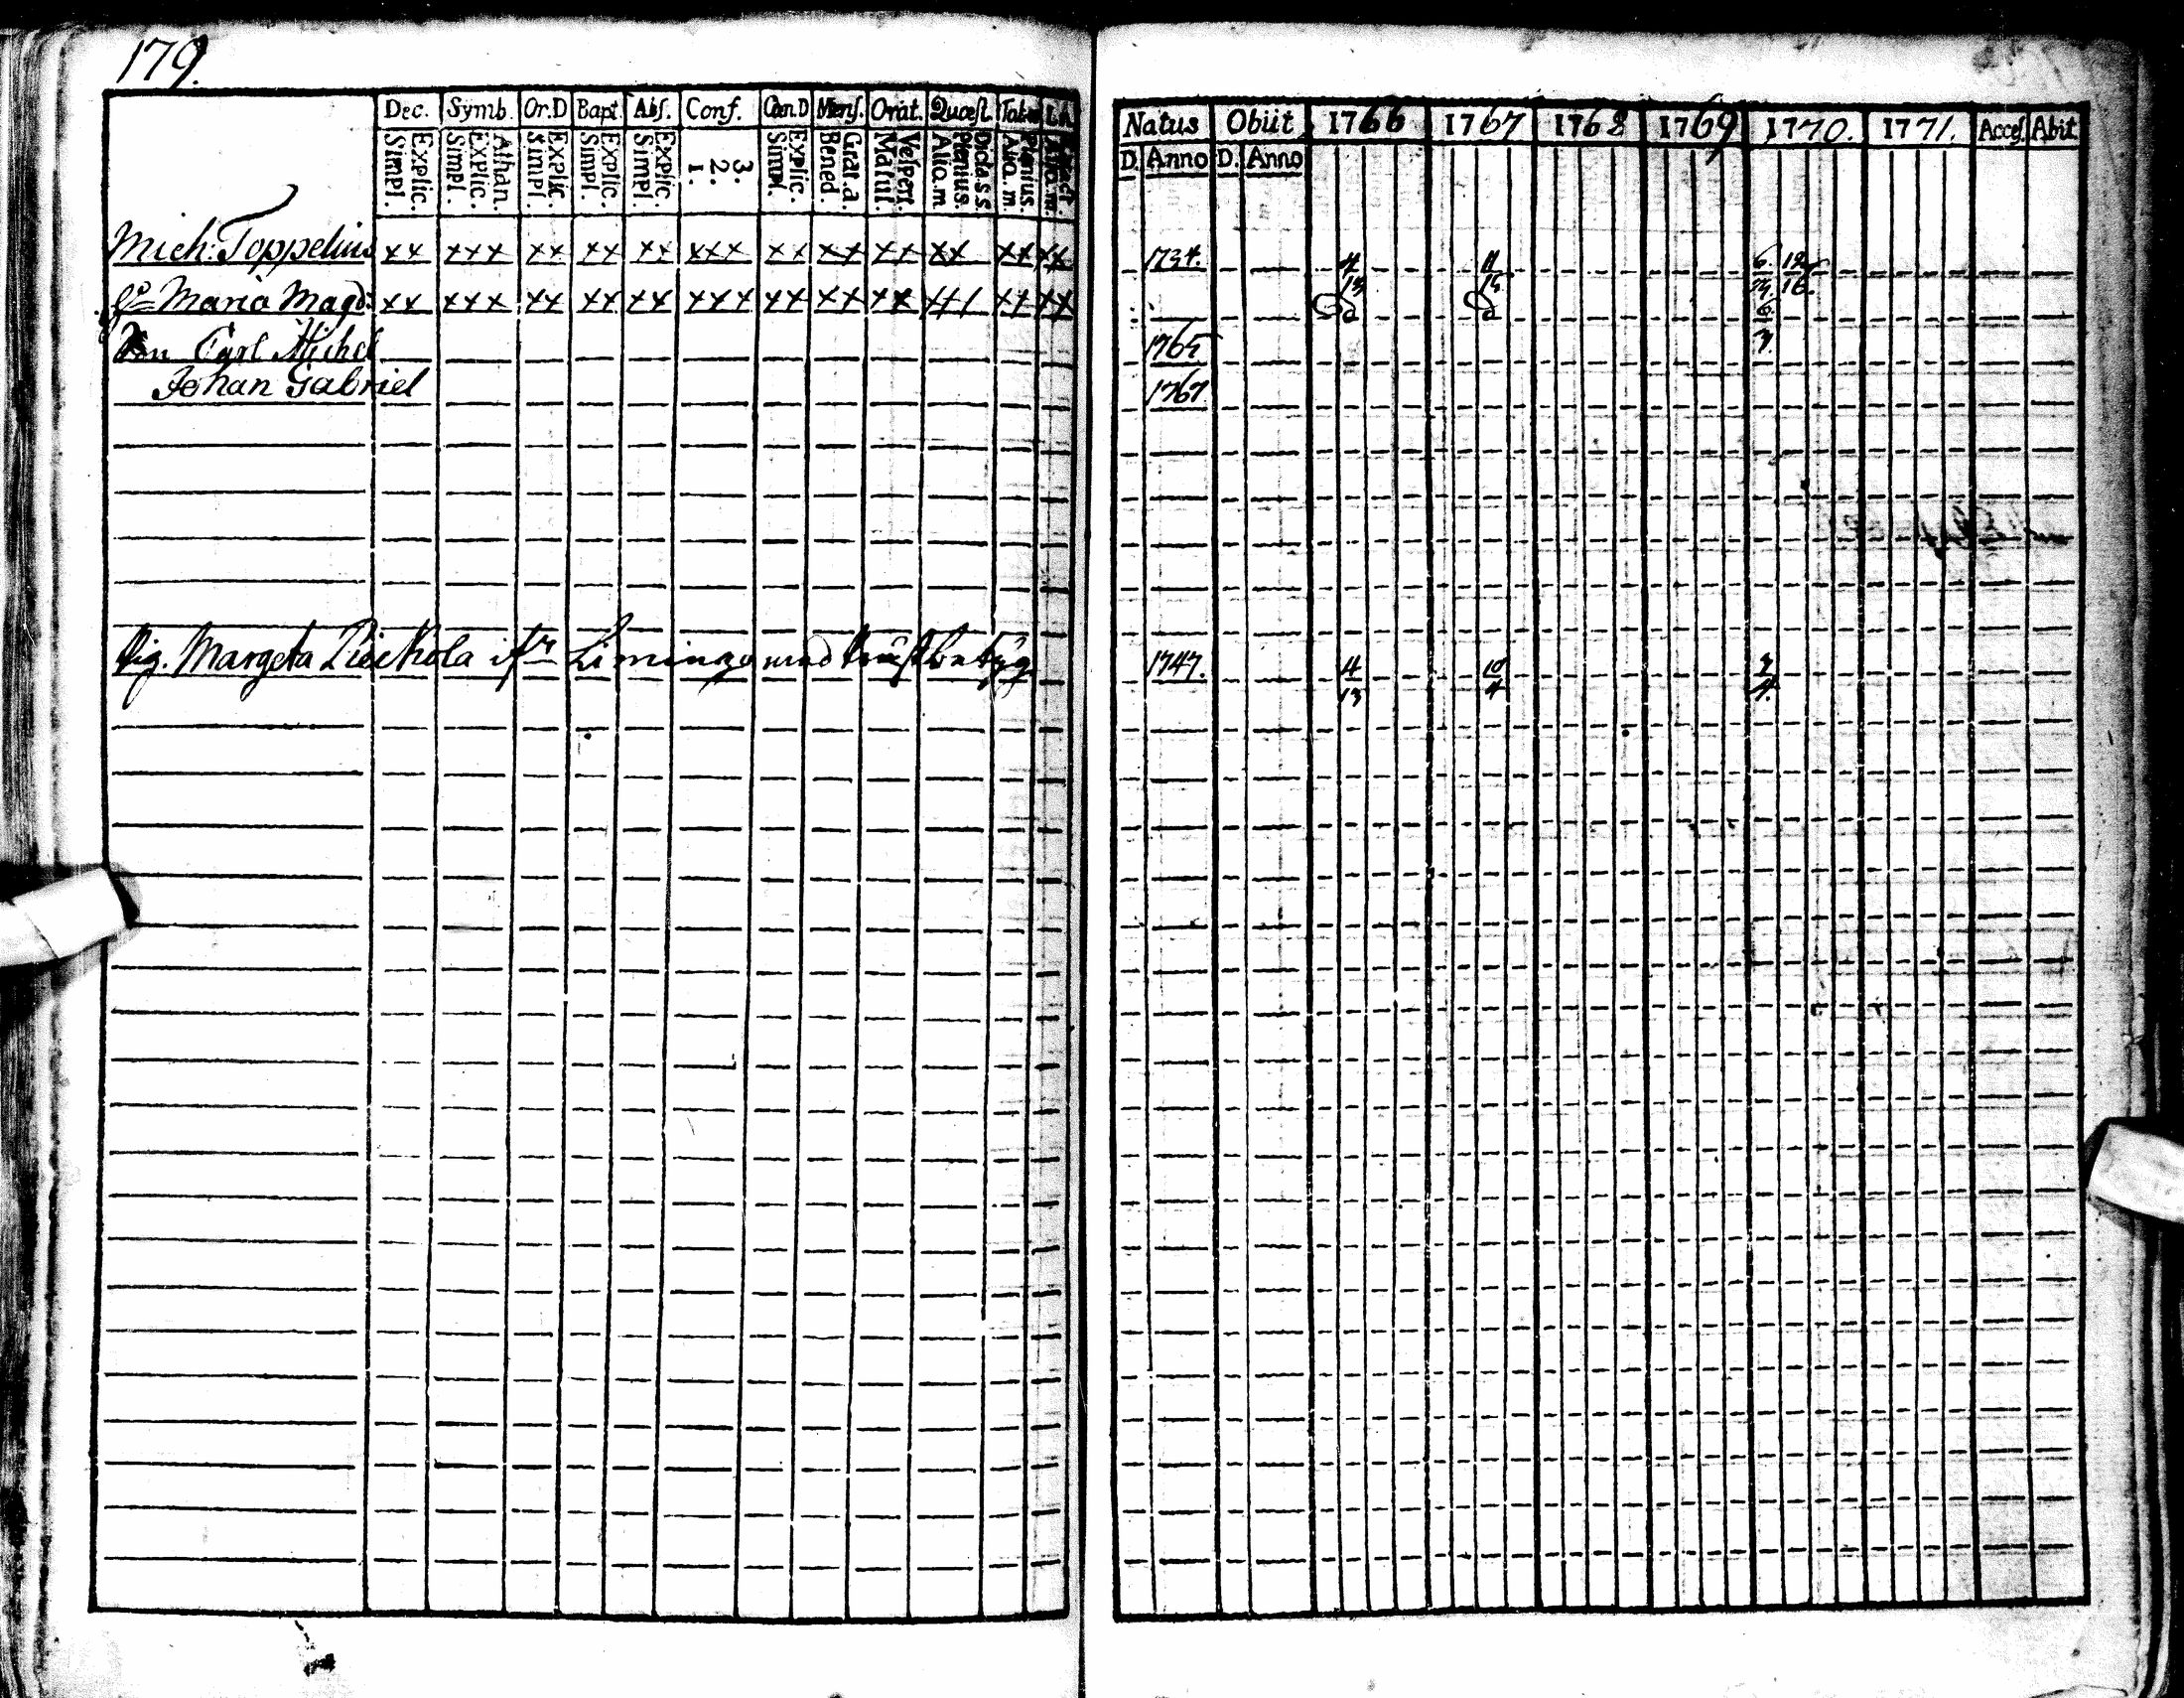 179.
Dec. Symb. Or.D Bapt. Abs. Conf. Can.D Mens. Orat. Quæst. Tab.
Explic. Simpl. Athan. Explic. Simpl. Explic. Simpl. Explic. Simpl. Explic. Simpl. 3. 2. 1. Explic. Simpl. Grat.a. Bened. Vesper. Matut. Dicta.s.s. Plenius. Aliq.m Plenius. Aliq.m. Aliq.m.
Natus Obiit 1766 1767 1768 1769 1770. 1771. Acces. Abit
D. Anno D. Anno
Mich: Toppelius xx xxx xx xx xx xxx xx xx xx xx xx xx 1734. 4 13 11 15 6. 12 16.
Maria Magd: xx xxx xx xx xx xxx xx xx xx xxx xx xx
Carl Michel 1765
Johan Gabriel 1767
Pig. Margeta ifr Limingo med 1747. 4 13 10 4 4.